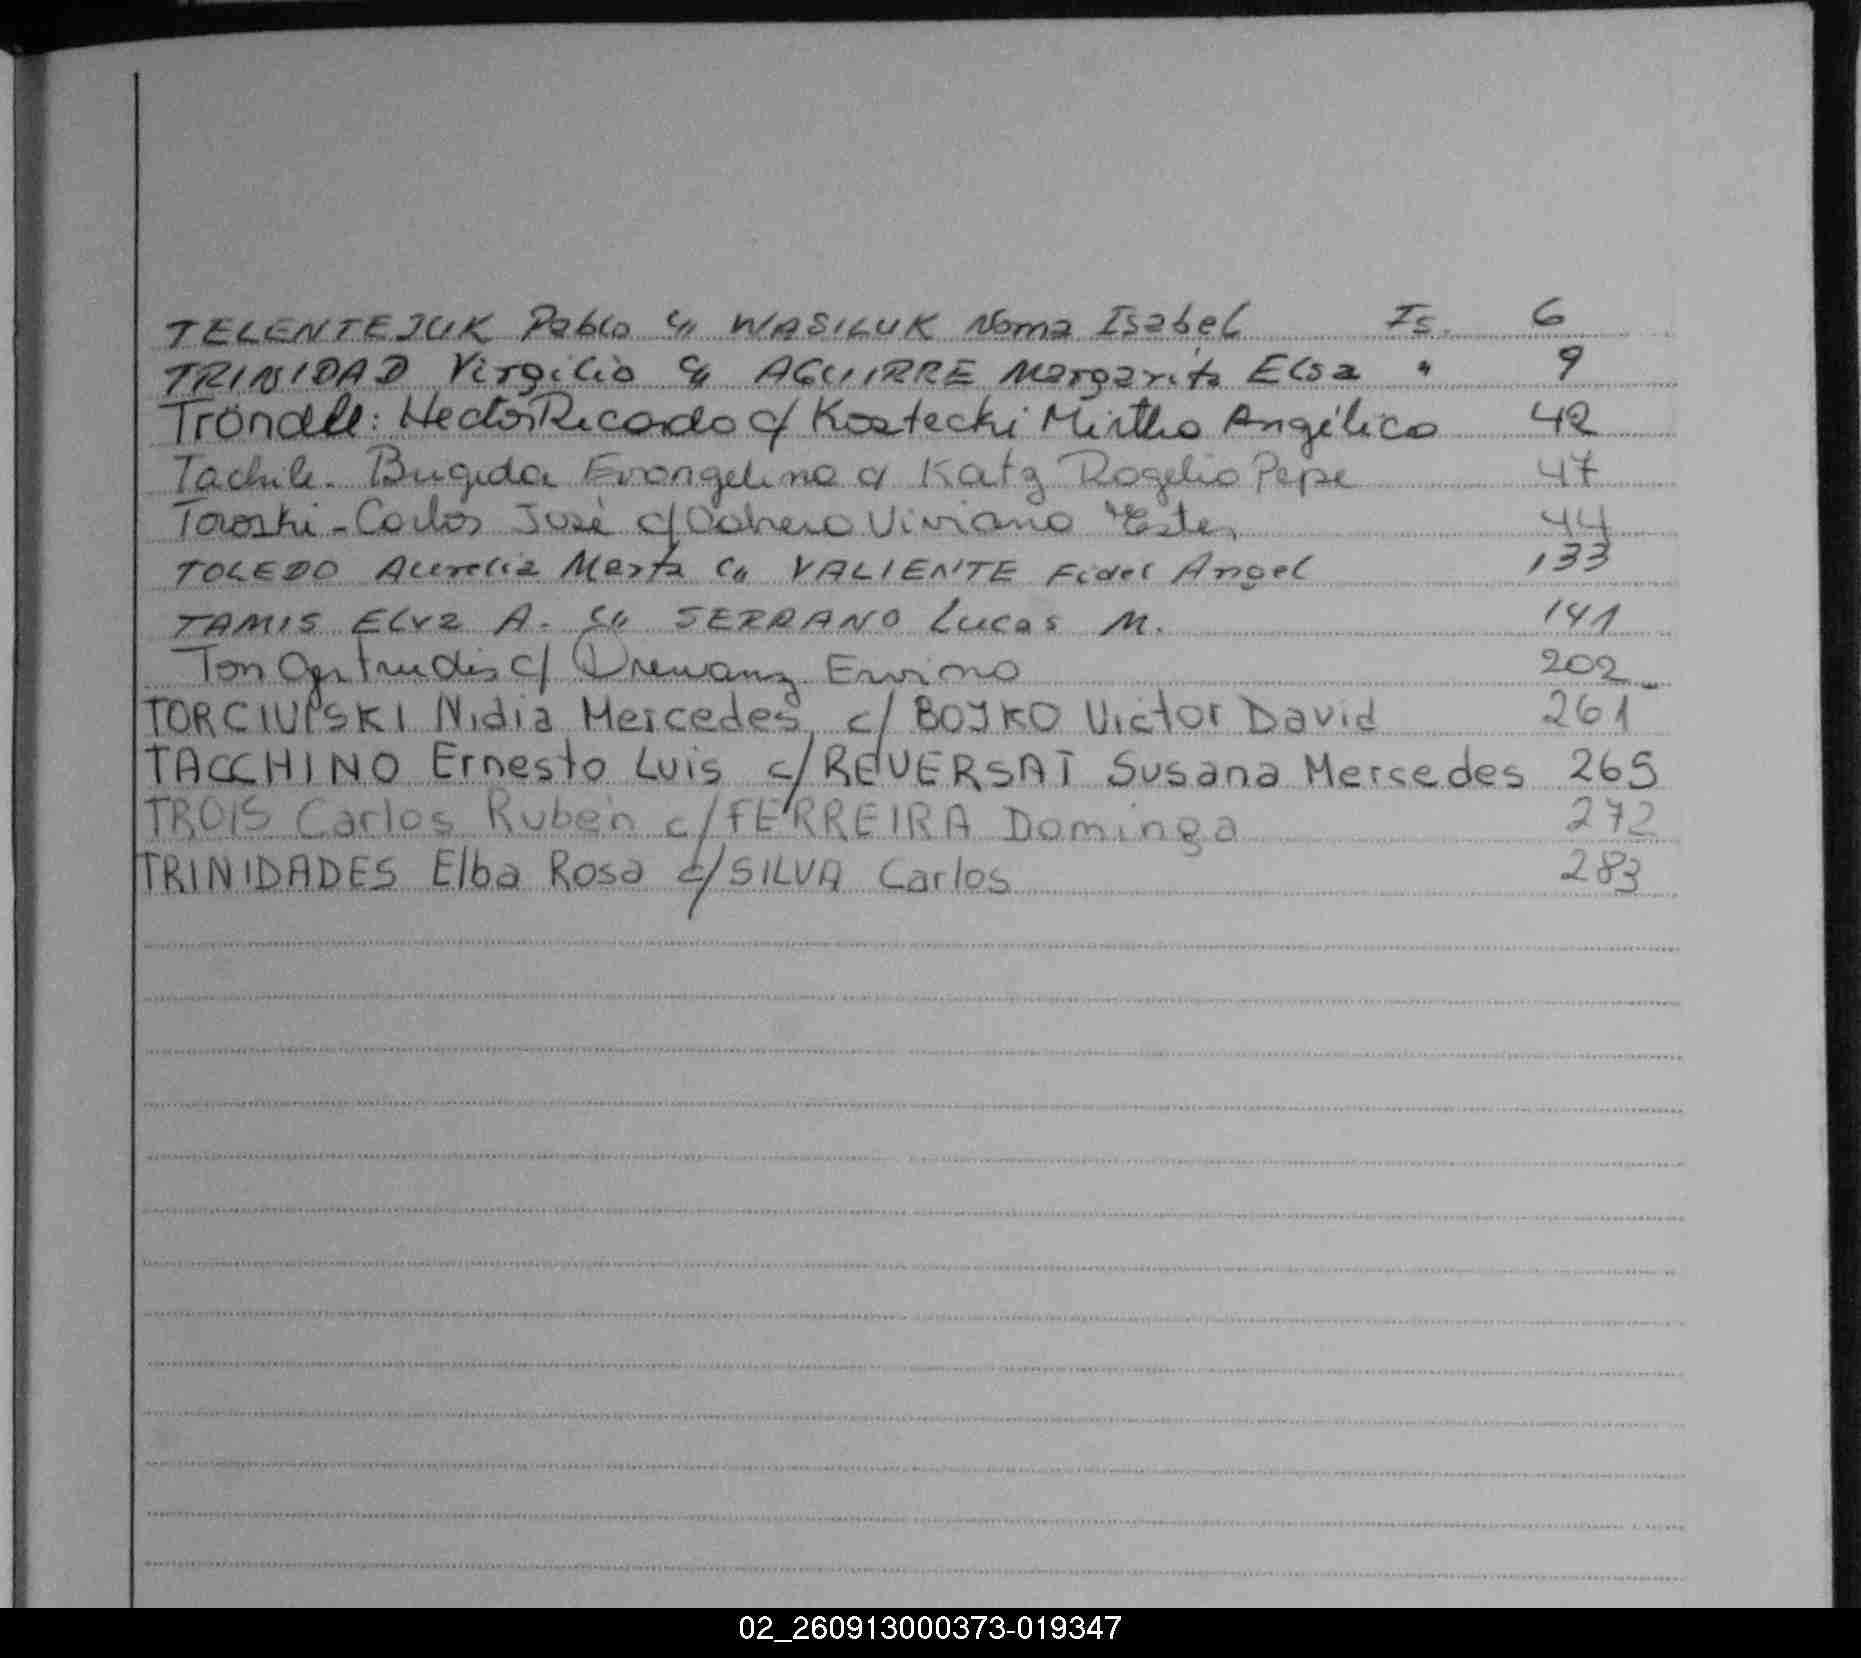 TELENTEJUK Pablo c/ WASILUK Noma Isabel Is. 6
TRINIDAD Virgilio c/ AGUIRRE Margarita Elsa " 9
Tröndle: Hector Ricardo c/ Kostecki Mirtha Angélica 42
Tachile. Brigida Evangelina c/ Katz Rogelio Pepe 47
Taroski - Carlos José c/ Viviana Ester 44
TOLEDO Aurelia Marta c/ VALIENTE Fidel Angel 133
TAMIS Elva A. c/ SERRANO Lucas M. 141
Ton c/ Drewanz Ervino 202
TORCIUPSKI Nidia Mercedes c/ BOJKO Victor David 261
TACCHINO Ernesto Luis c/ REVERSAT Susana Mercedes 265
TROIS Carlos Rubén c/ FERREIRA Dominga 272
TRINIDADES Elba Rosa c/ SILVA Carlos 283
02_260913000373-019347